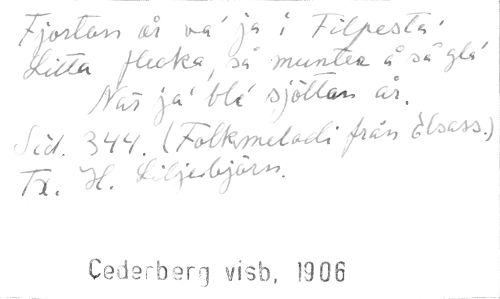 Fjortan år va' ja' i Filpesta'
Litta flecka, så munter å så gla'
När ja' ble' sjöttan år.
Sid. 344. (Folkmelodi från Elsass.)
Tx. H. Liljebjörn.
Cederberg visb, 1906